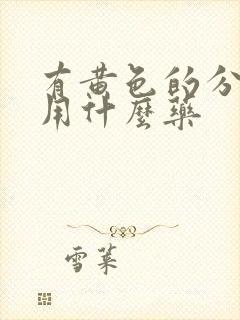 有黄色的分
用什麼藥
雪葉